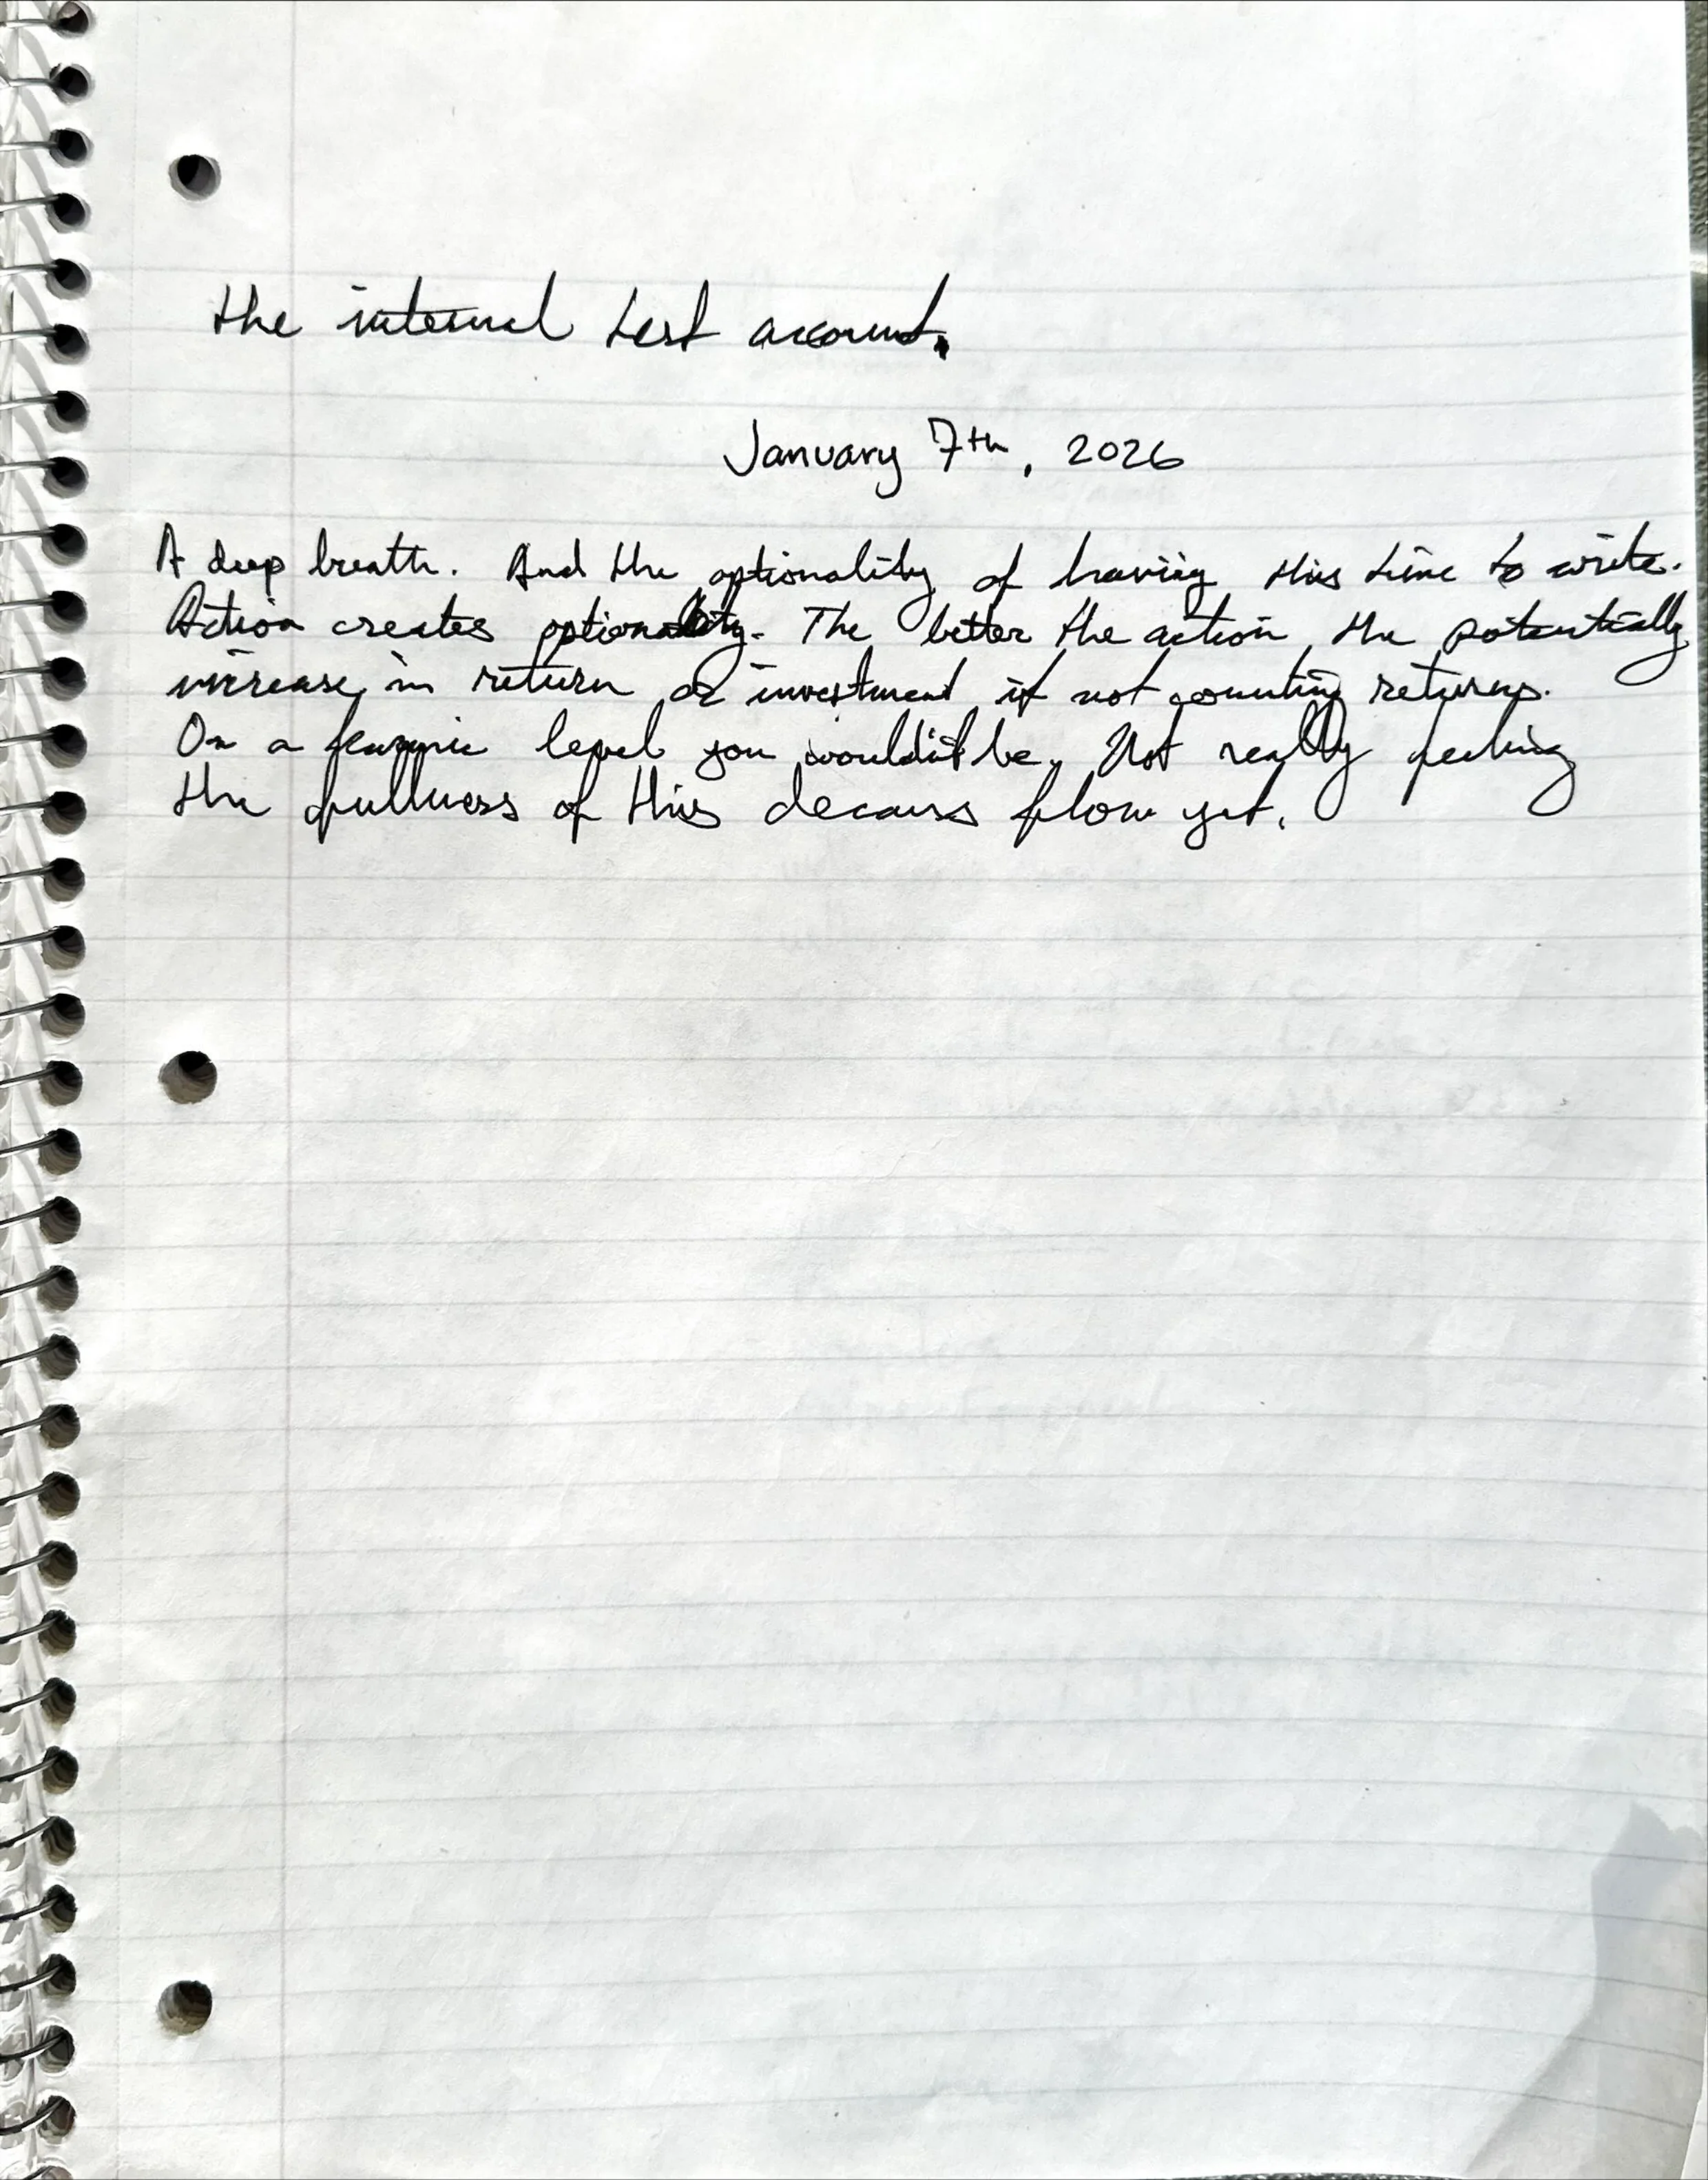 the internal test account.
January 7th, 2026
A deep breath. And the optionality of having this time to write.
Action creates optionality. The better the action, the potentially
increase in return or investment if not counting returns.
On a level you wouldn't be. Not really feeling
the fullness of this flow yet.